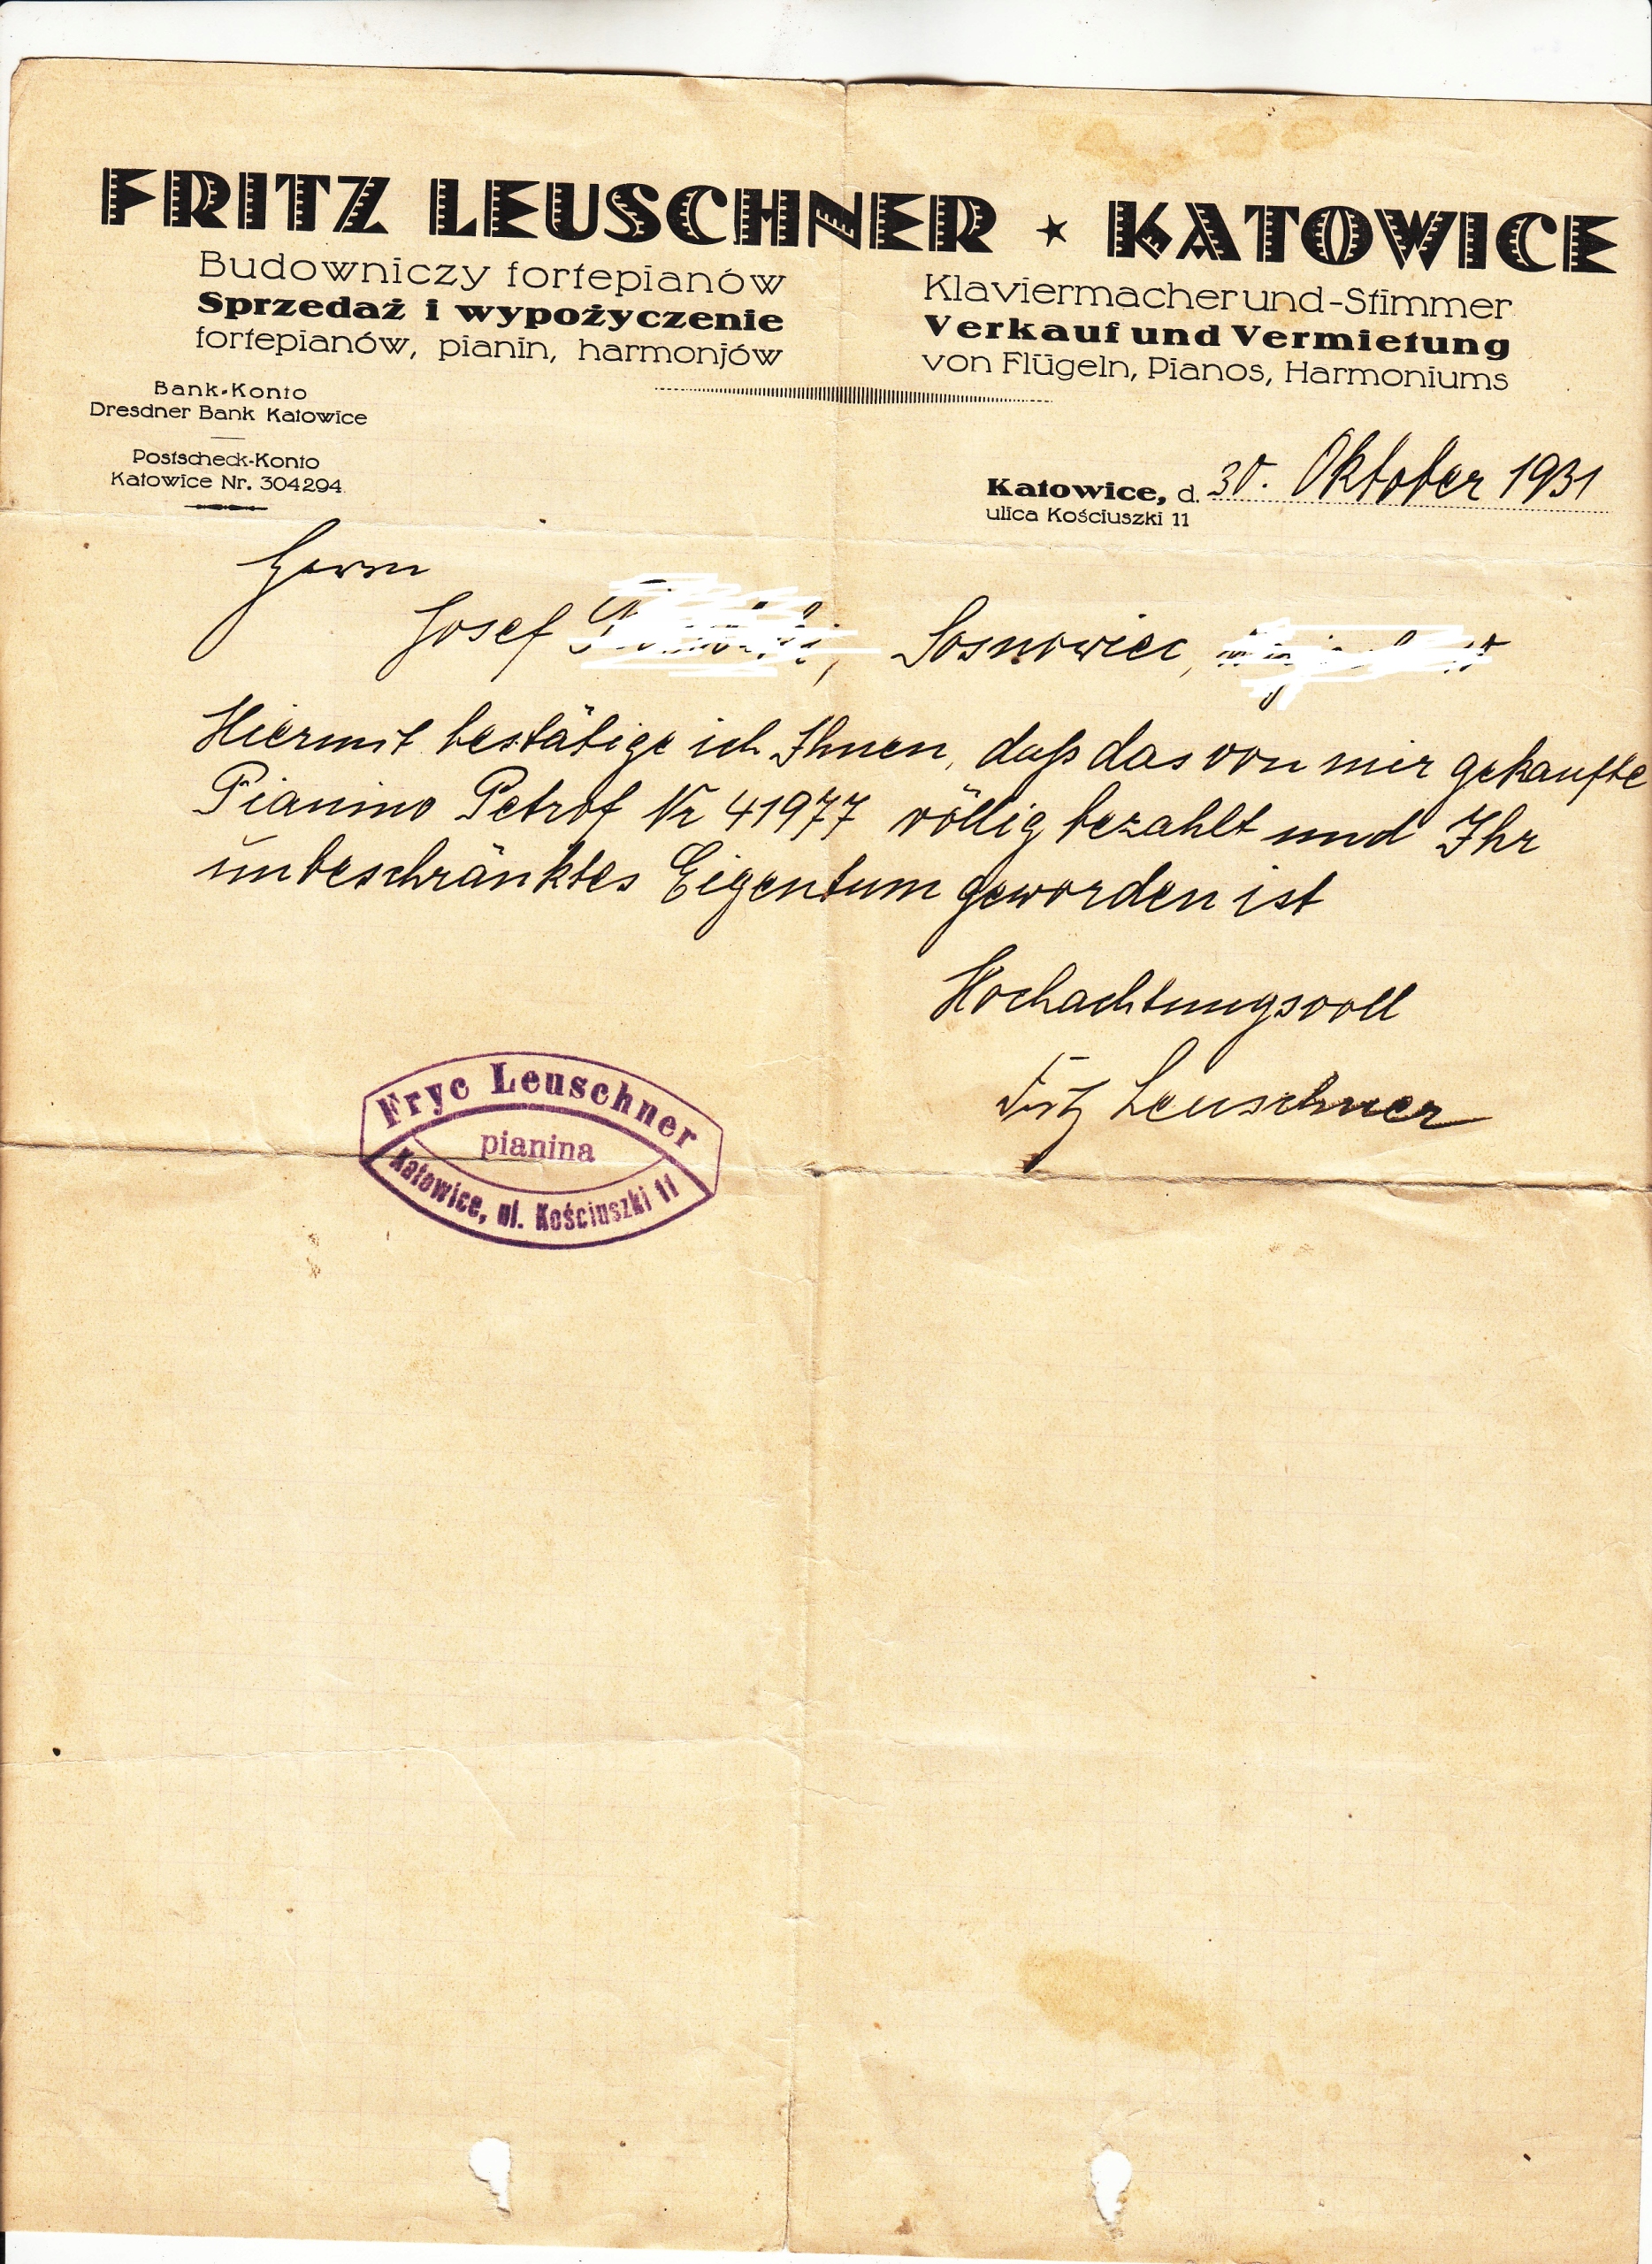 FRITZ LEUSCHNER ★ KATOWICE
Budowniczy fortepianów
Sprzedaż i wypożyczenie
fortepianów, pianin, harmonjów
Klaviermacher und -Stimmer
Verkauf und Vermietung
von Flügeln, Pianos, Harmoniums
Bank-Konto
Dresdner Bank Katowice
Postscheck-Konto
Katowice Nr. 304294
Katowice, d. 30. Oktober 1931
ulica Kościuszki 11
Herrn
Josef , Sosnowiec,
Hiermit bestätige ich Ihnen, daß das von mir gekaufte
Pianino Petrof Nr 41977 völlig bezahlt und Ihr
unbeschränktes Eigentum geworden ist
Hochachtungsvoll
Fritz Leuschner
Fryc Leuschner
pianina
Katowice, ul. Kościuszki 11